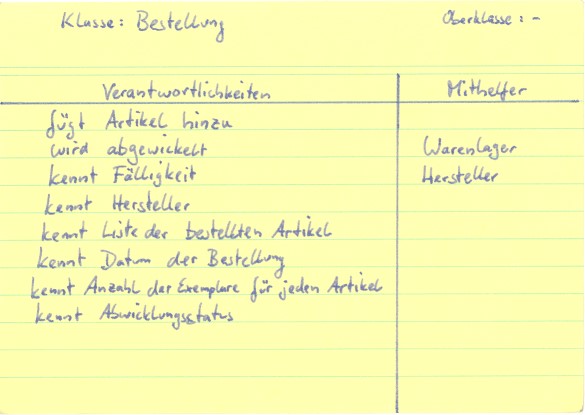 Klasse: Bestellung Oberklasse: -
Verantwortlichkeiten Mithelfer
fügt Artikel hinzu
wird abgewickelt Warenlager
kennt Fälligkeit Hersteller
kennt Hersteller
kennt Liste der bestellten Artikel
kennt Datum der Bestellung
kennt Anzahl der Exemplare für jeden Artikel
kennt Abwicklungsstatus